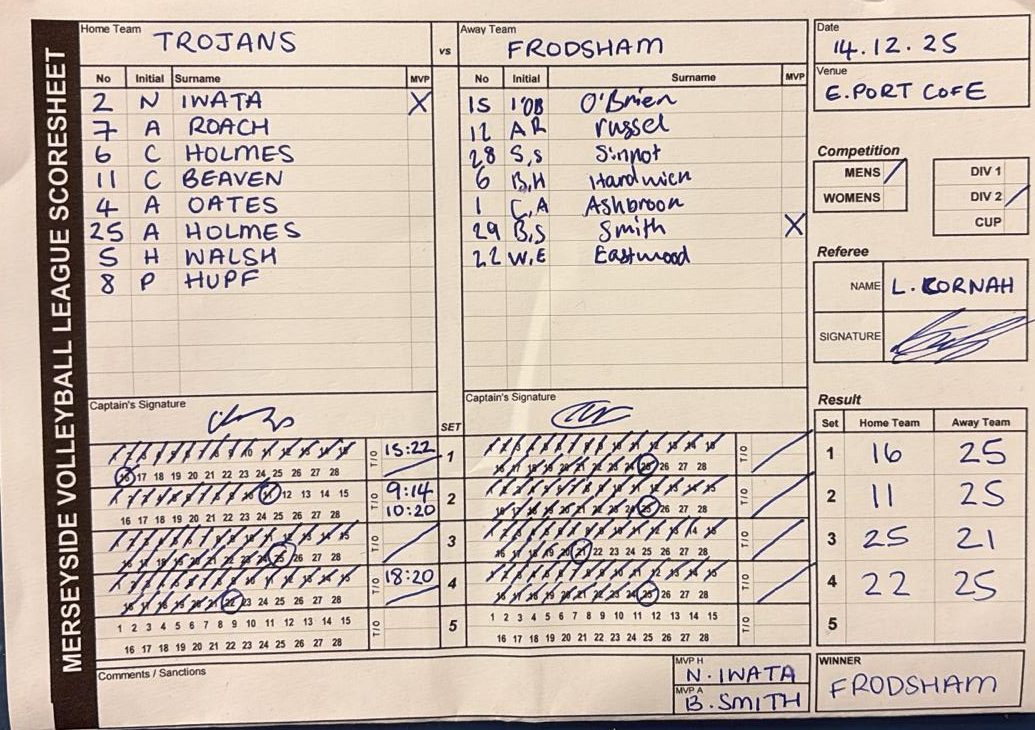 MERSEYSIDE VOLLEYBALL LEAGUE SCORESHEET
Home Team TROJANS
vs
Away Team FRODSHAM
Date 14.12.25
Venue E.PORT COFE
No Initial Surname MVP
2 N IWATA X
7 A ROACH
6 C HOLMES
11 C BEAVEN
4 A OATES
25 A HOLMES
5 H WALSH
8 P HUPF
No Initial Surname MVP
15 I'OB O'Brien
12 AR russel
28 S,s Sinnot
6 B,H Hardwich
1 C,A Ashbroon
29 B,S Smith X
22 W,E Eastwood
Competition
MENS /
WOMENS
DIV 1
DIV 2 /
CUP
Referee
NAME L. CORNAH
SIGNATURE
Captain's Signature
SET
Captain's Signature
1 2 3 4 5 6 7 8 9 10 11 12 13 14 15 T/O 15:22 1 1 2 3 4 5 6 7 8 9 10 11 12 13 14 15 T/O
16 17 18 19 20 21 22 23 24 25 26 27 28 16 17 18 19 20 21 22 23 24 25 26 27 28
1 2 3 4 5 6 7 8 9 10 11 12 13 14 15 T/O 9:14 2 1 2 3 4 5 6 7 8 9 10 11 12 13 14 15 T/O
16 17 18 19 20 21 22 23 24 25 26 27 28 10:20 16 17 18 19 20 21 22 23 24 25 26 27 28
1 2 3 4 5 6 7 8 9 10 11 12 13 14 15 T/O 3 1 2 3 4 5 6 7 8 9 10 11 12 13 14 15 T/O
16 17 18 19 20 21 22 23 24 25 26 27 28 16 17 18 19 20 21 22 23 24 25 26 27 28
1 2 3 4 5 6 7 8 9 10 11 12 13 14 15 T/O 18:20 4 1 2 3 4 5 6 7 8 9 10 11 12 13 14 15 T/O
16 17 18 19 20 21 22 23 24 25 26 27 28 16 17 18 19 20 21 22 23 24 25 26 27 28
1 2 3 4 5 6 7 8 9 10 11 12 13 14 15 T/O 5 1 2 3 4 5 6 7 8 9 10 11 12 13 14 15 T/O
16 17 18 19 20 21 22 23 24 25 26 27 28 16 17 18 19 20 21 22 23 24 25 26 27 28
Result
Set Home Team Away Team
1 16 25
2 11 25
3 25 21
4 22 25
5
Comments / Sanctions
MVP H N. IWATA
MVP A B. SMITH
WINNER
FRODSHAM